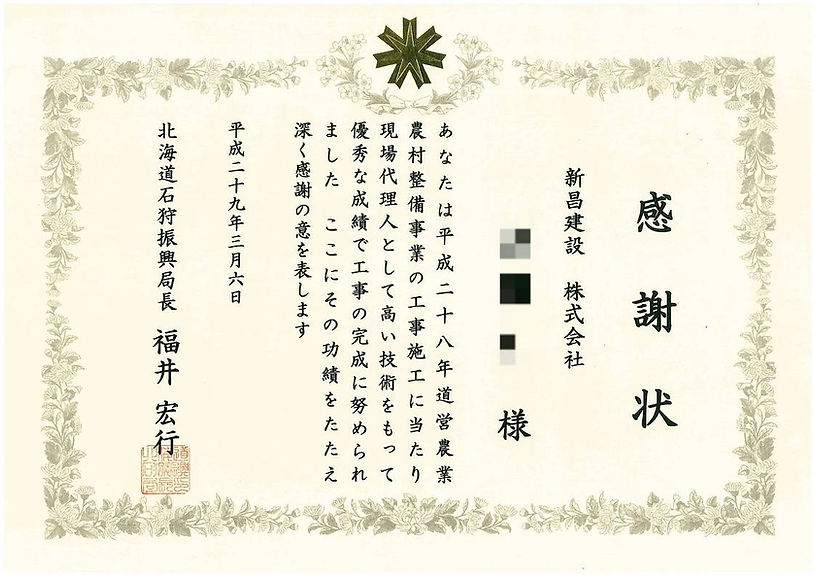 感謝状
新昌建設 株式会社
様
あなたは平成二十八年道営農業
農村整備事業の工事施工に当たり
現場代理人として高い技術をもって
優秀な成績で工事の完成に努められ
ました ここにその功績をたたえ
深く感謝の意を表します
平成二十九年三月六日
北海道石狩振興局長 福井 宏行